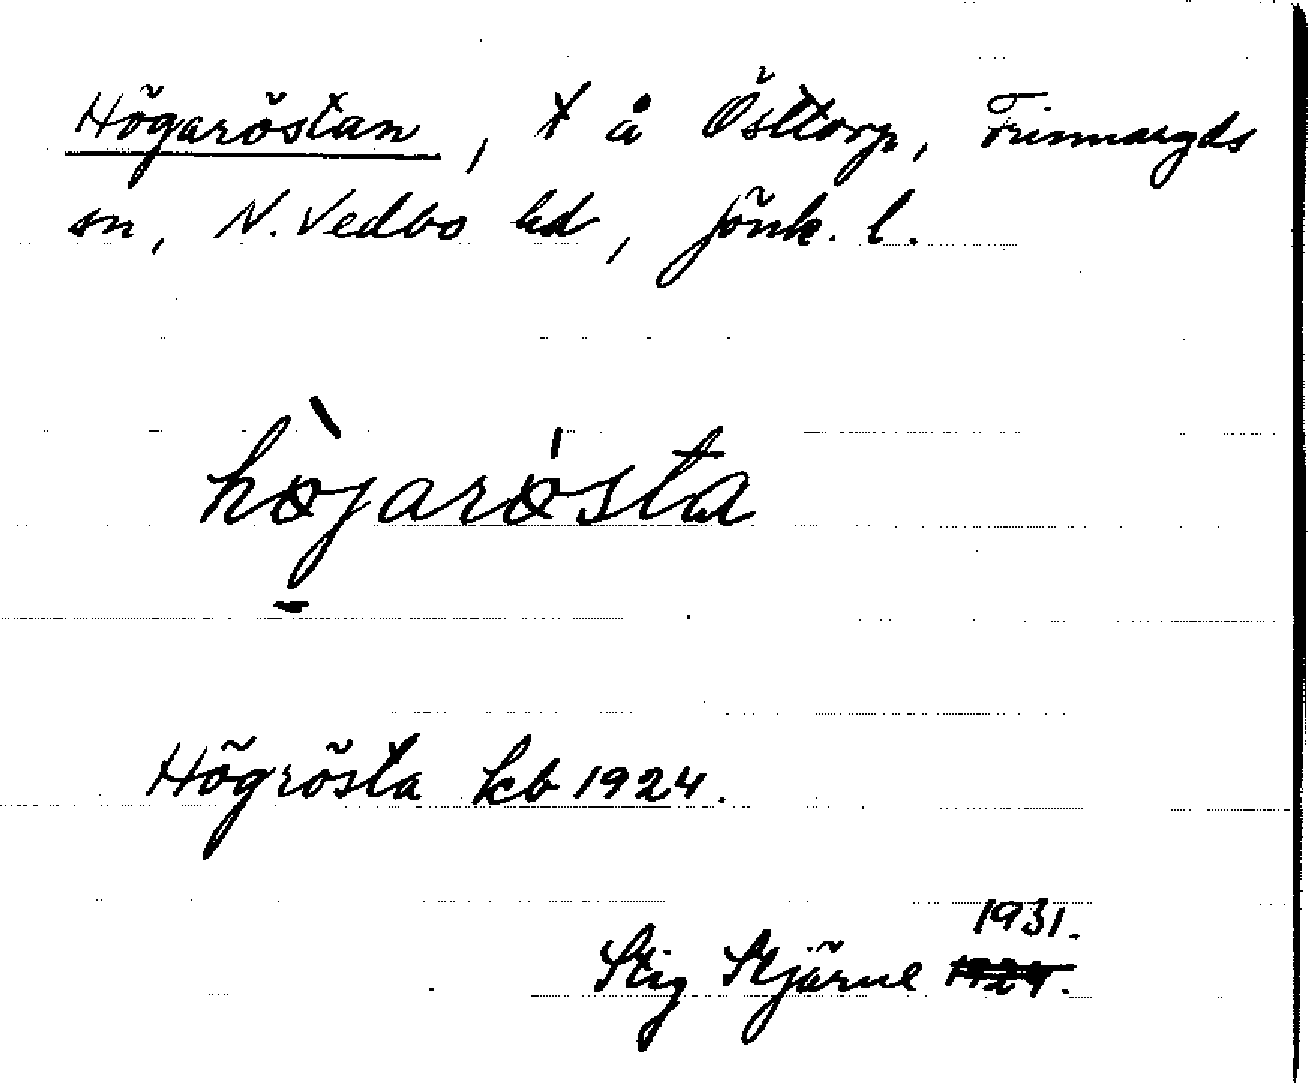 Högaröstan, t å Östtorp, Frinnaryds
sn, N. Vedbo hd, Jönk. l.
højarøsta
Högrösta kb 1924.
1931.
Stig Stjärne 1924.